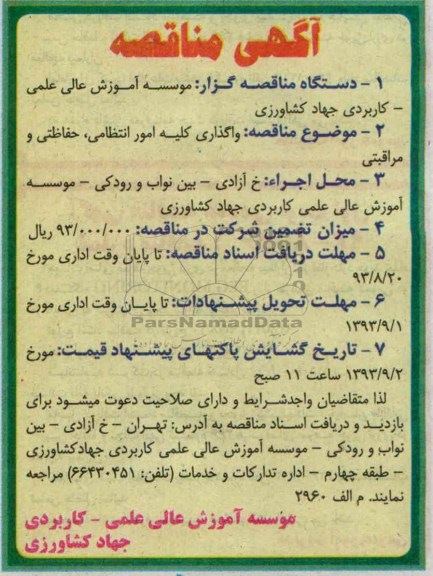 آگهی مناقصه
۱ - دستگاه مناقصه گزار: موسسه آموزش عالی علمی
- کاربردی جهاد کشاورزی
۲ - موضوع مناقصه: واگذاری کلیه امور انتظامی، حفاظتی و
مراقبتی
۳ - محل اجراء: خ آزادی - بین نواب و رودکی - موسسه
آموزش عالی علمی کاربردی جهاد کشاورزی
۴ - میزان تضمین شرکت در مناقصه: ۹۳/۰۰۰/۰۰۰ ریال
۵ - مهلت دریافت اسناد مناقصه: تا پایان وقت اداری مورخ
۹۳/۸/۲۰
۶ - مهلت تحویل پیشنهادات: تا پایان وقت اداری مورخ
۱۳۹۳/۹/۱
ParsNamadData
۷ - تاریخ گشایش پاکتهای پیشنهاد قیمت: مورخ
۱۳۹۳/۹/۲ ساعت ۱۱ صبح
لذا متقاضیان واجدشرایط و دارای صلاحیت دعوت میشود برای
بازدید و دریافت اسناد مناقصه به آدرس: تهران - خ آزادی - بین
نواب و رودکی - موسسه آموزش عالی علمی کاربردی جهادکشاورزی
- طبقه چهارم - اداره تدارکات و خدمات (تلفن: ۶۶۴۳۰۴۵۱) مراجعه
نمایند. م الف ۲۹۶۰
مؤسسه آموزش عالی علمی - کاربردی
جهاد کشاورزی